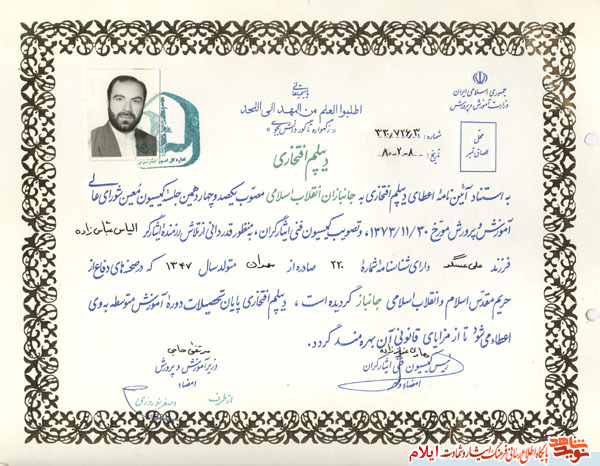 باسمه تعالی
اطلبوا العلم من المهد الی اللحد
«ز گهواره تا گور دانش بجوی»
جمهوری اسلامی ایران
وزارت آموزش و پرورش
شماره: ۳۳/۷۲۶۳
تاریخ: ۸۰-۲-۸
محل
الصاق تمبر
دیپلم افتخاری
به استناد آئین نامه اعطای دیپلم افتخاری به جانبازان انقلاب اسلامی مصوب یکصد و چهاردهمین جلسه کمیسیون معین شورای عالی
آموزش و پرورش مورخ ۱۳۷۳/۱۱/۳۰، و تصویب کمیسیون فنی ایثارگران، به منظور قدردانی از تلاش رزمنده ایثارگر الیاس عباس زاده
فرزند علی عسگر دارای شناسنامه شماره ۲۲۰ صادره از مهران متولد سال ۱۳۴۷ که در صحنه های دفاع از
حریم مقدس اسلام و انقلاب اسلامی جانباز گردیده است، دیپلم افتخاری پایان تحصیلات دوره آموزش متوسطه به وی
اعطاء می شود تا از مزایای قانونی آن بهره مند گردد.
مرتضی حاجی
وزیر آموزش و پرورش
امضاء
از طرف
اصغر نوروزی
رئیس کمیسیون فنی ایثارگران
امضاء
نوید شاهد
پایگاه اطلاع رسانی فرهنگ ایثار و شهادت ایلام